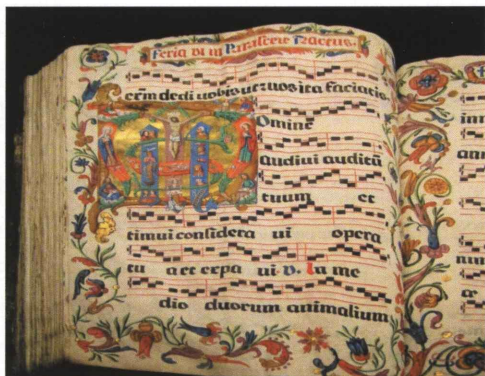 Feria VI in Parasceve Tractus.
dedi uobis ut uos ita faciatis
Ominē
audiui auditū
tuum et
timui considera ui opera
tu a et expa ui v. In me
dio duorum animalium